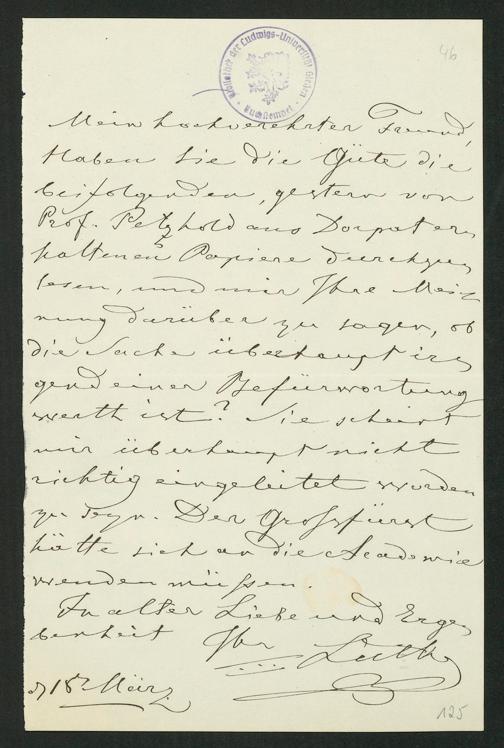 Bibliothek der Ludwigs-Universität Giessen
Buchstempel
46
Mein hochverehrter Freund,
Haben Sie die Güte die
beifolgenden, gestern von
Prof. Petzhold aus Dorpat er-
haltenen Papiere durchzu-
lesen, und mir Ihre Mei-
nung darüber zu sagen, ob
die Sache überhaupt ir-
gend einer Befürwortung
werth ist? Sie scheint
mir überhaupt nicht
richtig eingeleitet worden
zu seyn. Der Grossfürst
hätte sich an die Academie
wenden müssen.
In alter Liebe und Erge-
benheit Ihr
18 März
125